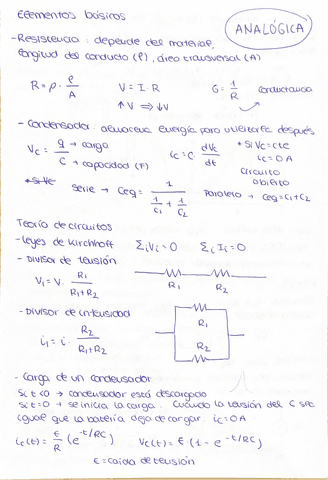 Elementos básicos
ANALÓGICA
- Resistencia : depende del material,
longitud del conducto (ℓ), área transversal (A)
R = ρ · ℓ/A    V = I · R    G = 1/R conductancia
↑V ⇒ ↓V
- Condensador: almacena energía para utilizarla después
Vc = q/C → carga → capacidad (F)    ic = C · dVc/dt    * Si Vc = cte
ic = 0 A
circuito
abierto
* Si Vc    serie → Ceq = 1/(1/C1 + 1/C2)    Paralelo → Ceq = C1 + C2
Teoría de circuitos
- Leyes de Kirchhoff    Σi Vi = 0    Σi Ii = 0
- Divisor de tensión
V1 = V · R1/(R1+R2)    R1    R2
- Divisor de intensidad
i1 = i · R2/(R1+R2)    R1
R2
- Carga de un condensador
Si t<0 → condensador está descargado
Si t=0 → se inicia la carga. Cuando la tensión del C sea
igual que la batería deja de cargar. ic = 0A
ic(t) = ε/R (e^-t/RC)    Vc(t) = ε (1 - e^-t/RC)
ε = caída de tensión